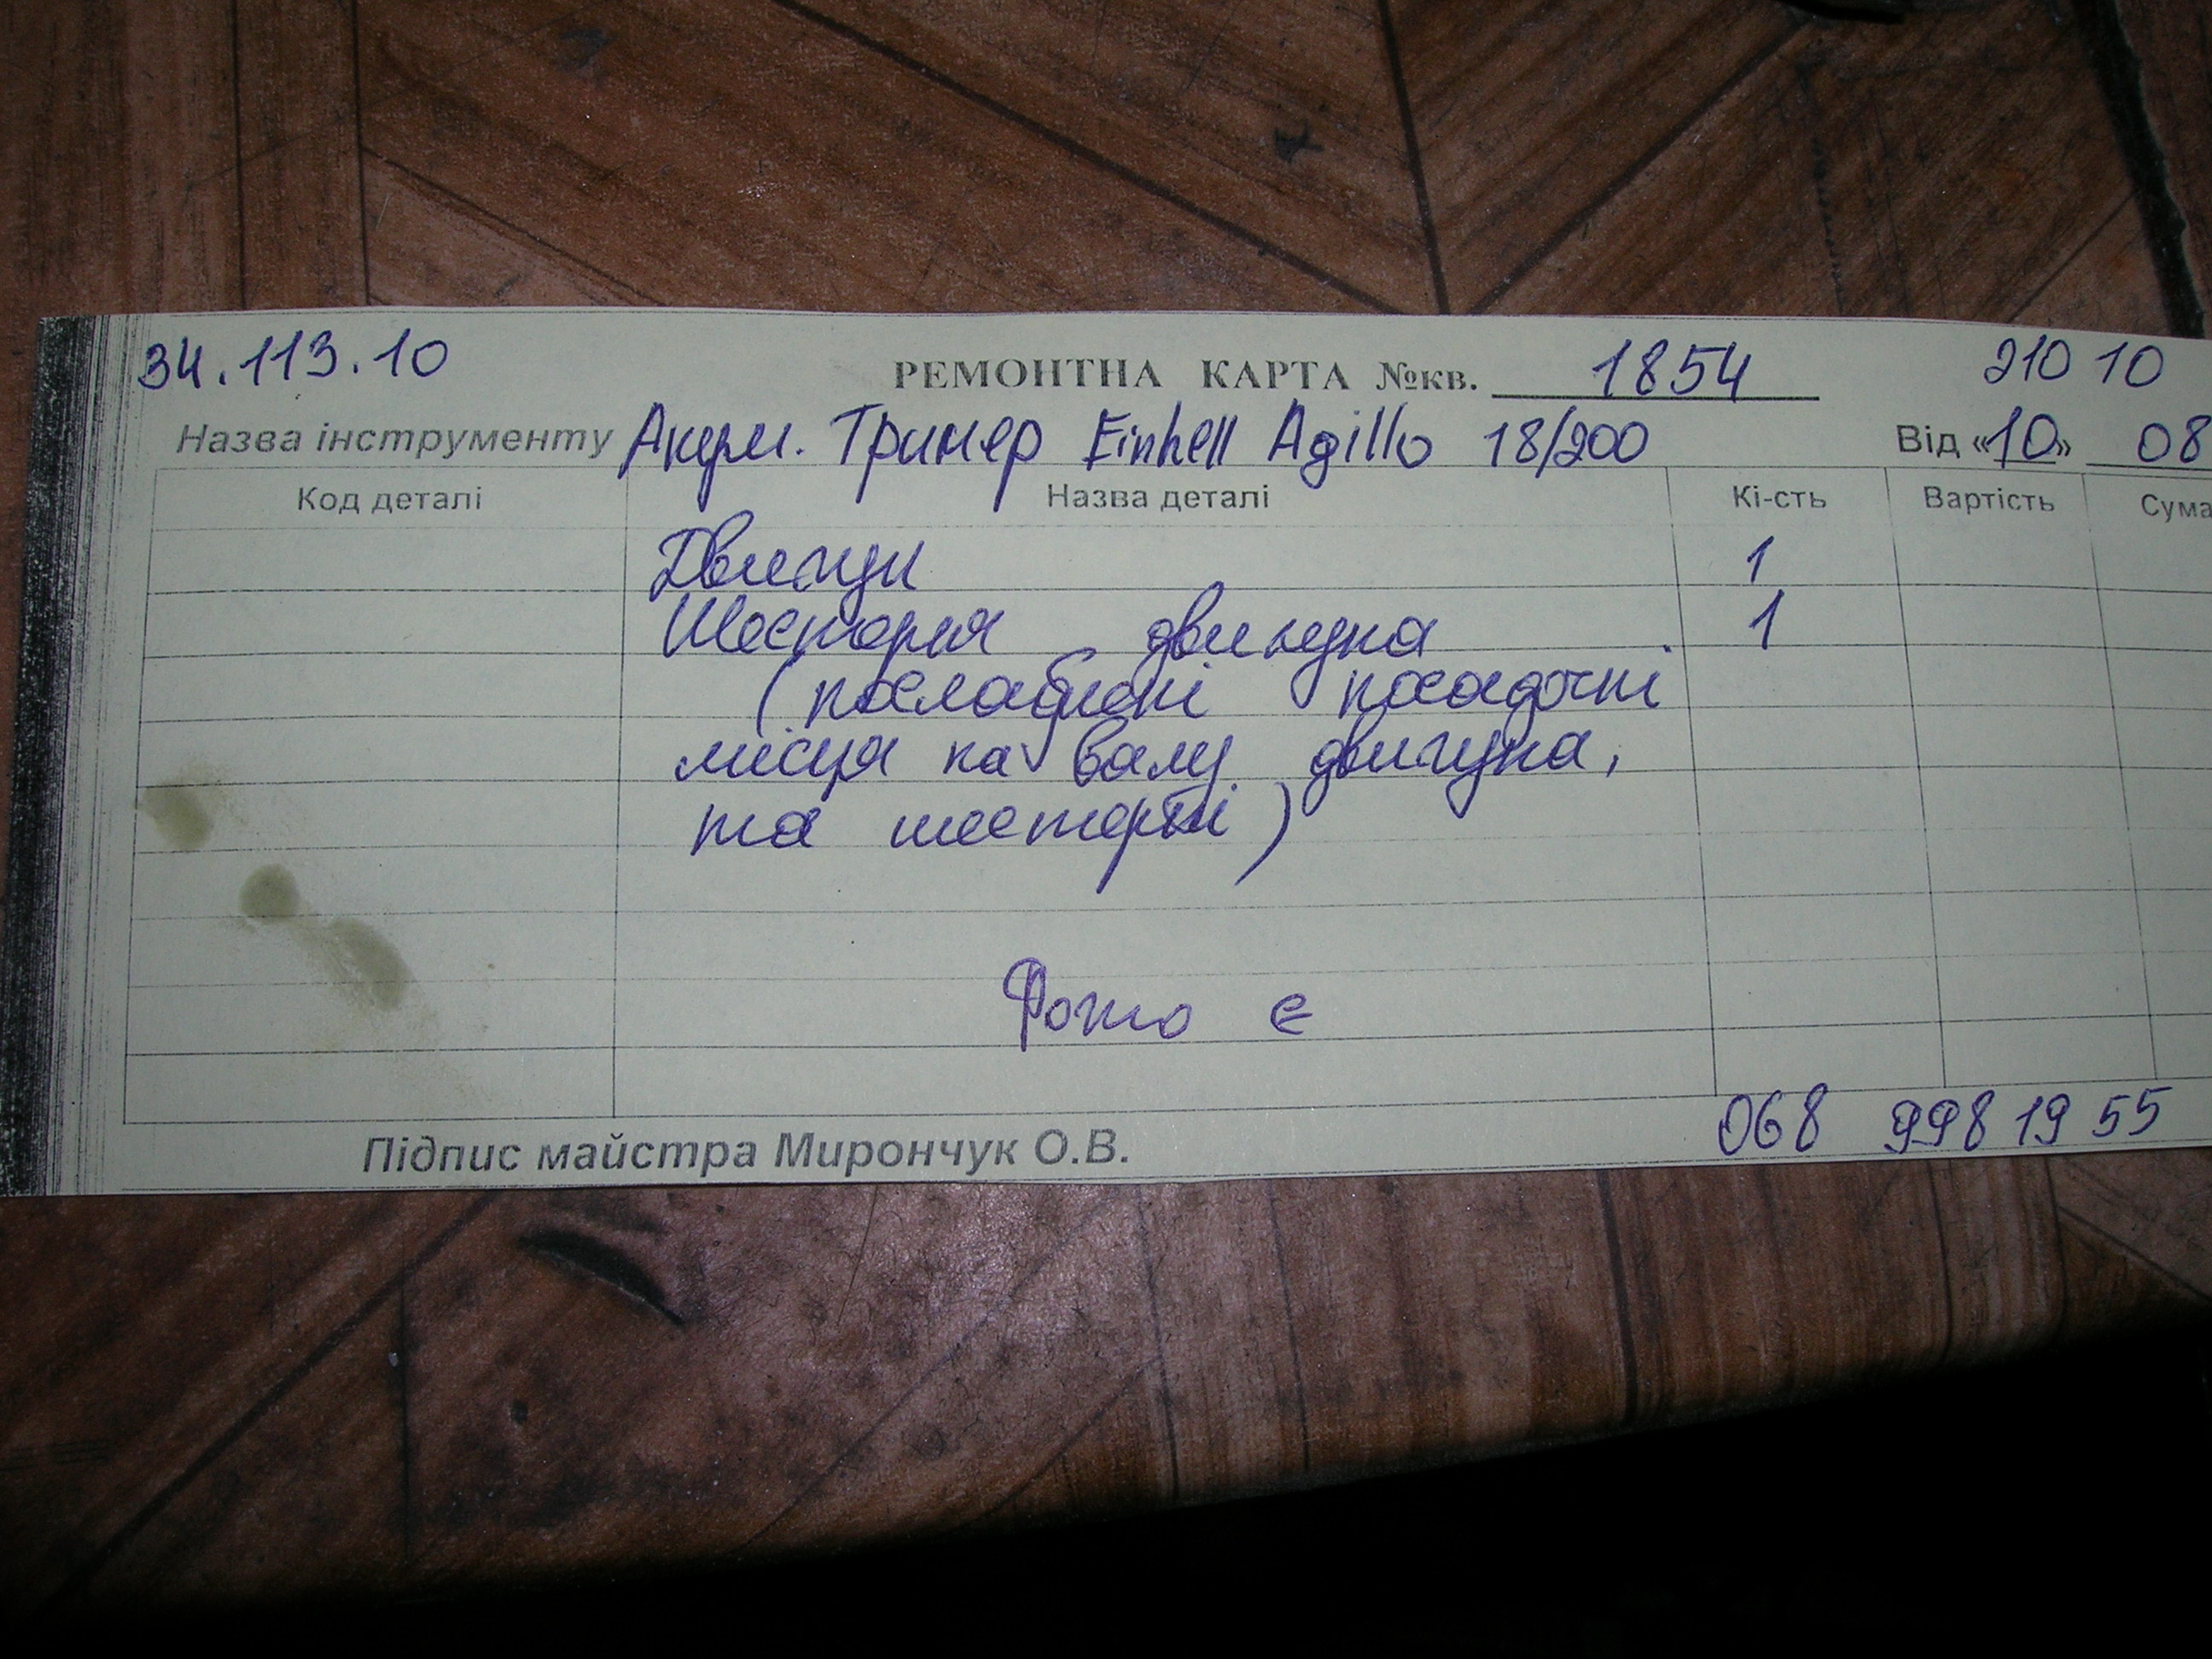 34.113.10 РЕМОНТНА КАРТА №кв. 1854 21010
Назва інструменту Акум. Тример Einhell Agillo 18/200 Від «10» 08
Код деталі Назва деталі Кі-сть Вартість Сума
Двигун 1
Шестерня двигуна 1
(послаблені посадочні
місця на валу двигуна,
та шестерні)
Фото є
068 998 19 55
Підпис майстра Мирончук О.В.